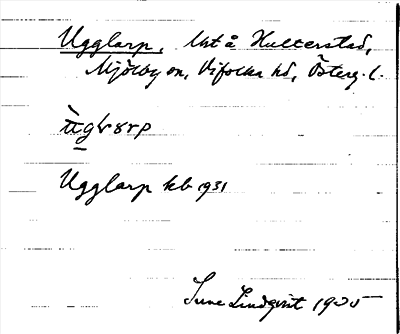 Ugglarp, Urt å Hulterstad,
Mjölby sn, Vifolka hd, Österg. l.
Ugglarp kb 1931
Sune Lindqvist 1935